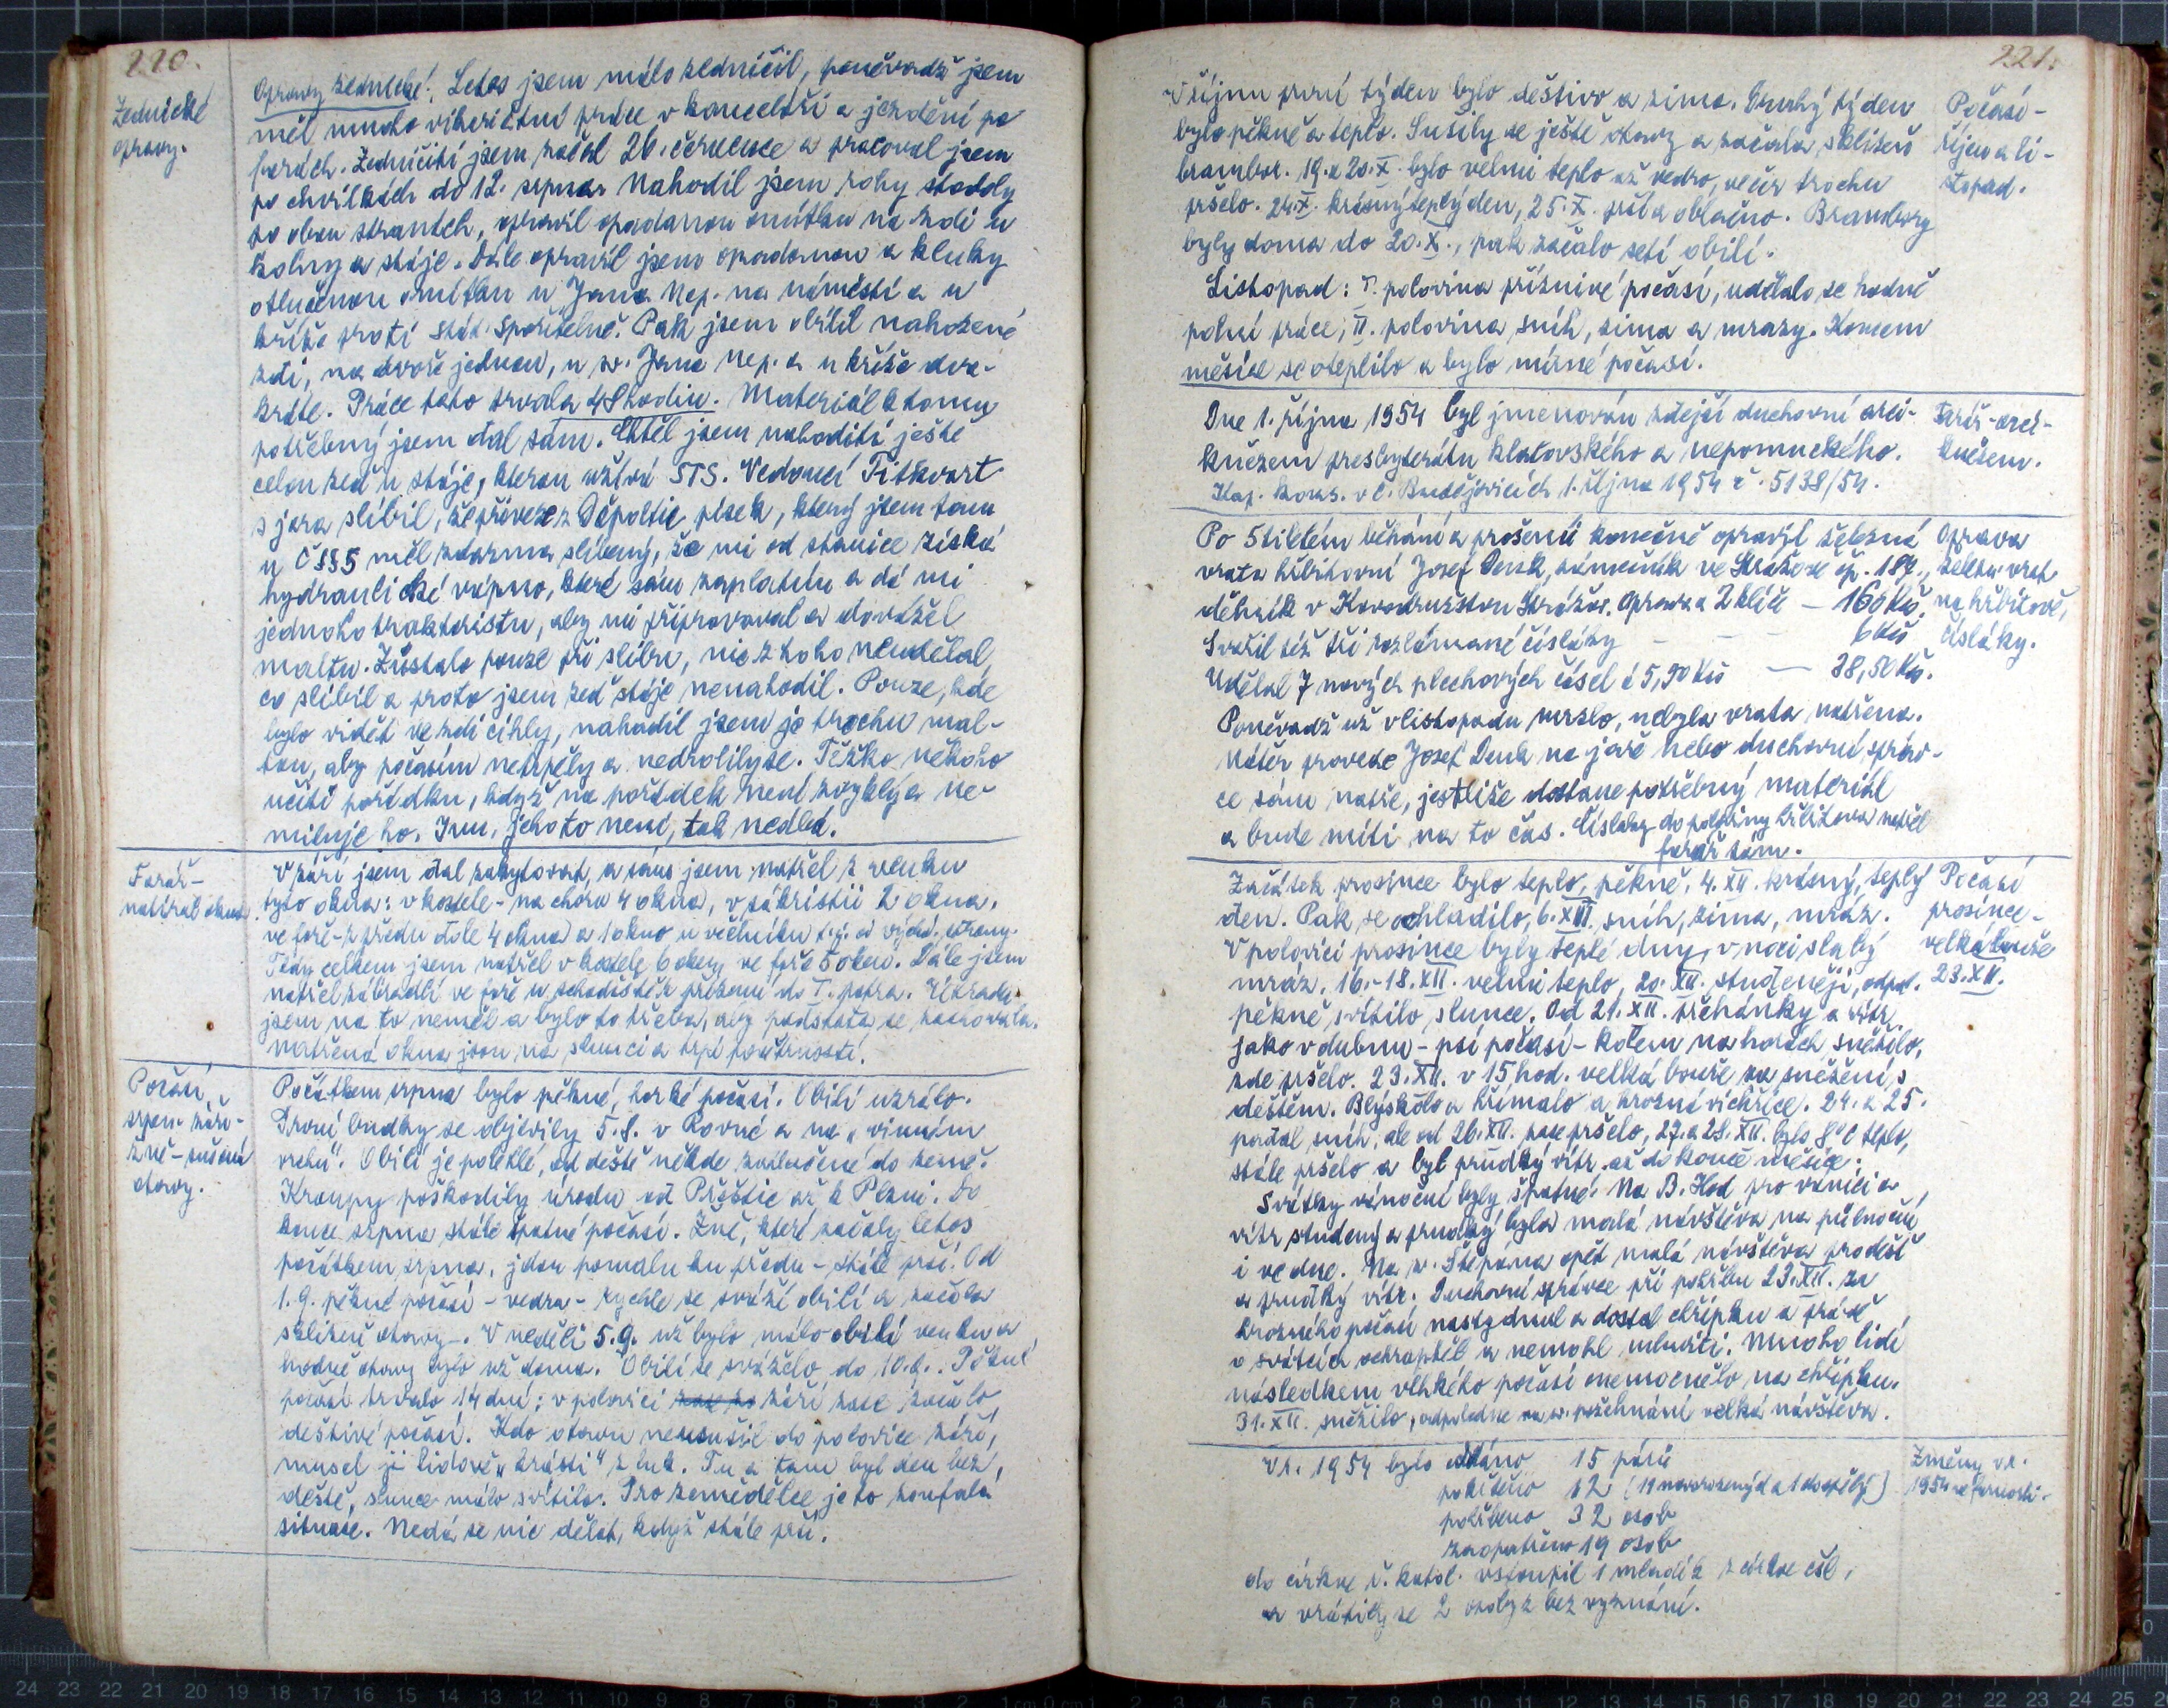 220.
Zednické
opravy.
Opravy zednické: Letos jsem málo zedničil, poněvadž jsem
měl mnoho vikariátní práce v kanceláři a ježdění po
farách. Zedničiti jsem začal 26. července a pracoval jsem
po chvilkách do 12. srpna. Nahodil jsem rohy stodoly
po obou stranách, opravil opadanou omítku na zdi u
kolny a stáje. Dále opravil jsem opadanou a kluky
otlučenou omítku u Jana Nep. na náměstí a u
kříže proti stát. spořitelně. Pak jsem obílil nahozené
zdi, na dvoře jednou, u sv. Jana Nep. a u kříže dva-
kráte. Práce tato trvala 48 hodin. Materiál k tomu
potřebný jsem dal sám. Chtěl jsem nahoditi ještě
celou zeď u stáje, kterou užívá STS. Vedoucí Titkvart
s jara slíbil, že přiveze z Děpoltic písek, který jsem tam
u ČSSS měl zdarma slíbený, že mi od stanice získá
hydraulické vápno, které sám zaplatím a dá mi
jednoho traktoristu, aby mi připravoval a dovážel
maltu. Zůstalo pouze při slibu, nic z toho neudělal,
co slíbil a proto jsem zeď stáje nenahodil. Pouze, kde
bylo viděti ve zdi cihly, nahodil jsem je trochu mal-
tou, aby počasím netrpěly a nedrolily se. Těžko někoho
učiti pořádku, když na pořádek není zvyklý a ne-
miluje ho. Inu, jeho to není, tak nedbá.
Farář-
natírat okna.
V září jsem dal zakytovat, a sám jsem natřel z venku
tyto okna: v kostele - na chóru 4 okna, v sákristii 2 okna,
ve faře - z předu dole 4 okna a 1 okno u věčníku t.j. od vých. strany.
Tedy celkem jsem natřel v kostele 6 oken, ve faře 5 oken. Dále jsem
natřel zábradlí ve faře u schodiště z přízemí do I. patra. Úhradu
jsem na to neměl a bylo to třeba, aby podstata se zachovala.
Natřená okna jsou na slunci a trpí povětrností.
Počasí
srpen-září-
žně-sušení
otavy.
Počátkem srpna bylo pěkné, horké počasí. Obilí uzrálo.
První budky se objevily 5.8. v Rovné a na „vinném
vrchu“. Obilí je polehlé, od deště někde zatlučené do země.
Kroupy poškodily úrodu od Přeštic až k Plzni. Do
konce srpna stále špatné počasí. Žně, které začaly letos
počátkem srpna, jdou pomalu ku předu - stále prší. Od
1.9. pěkné počasí - vedra - rychle se sváží obilí a začala
sklizeň otavy -. V neděli 5.9. už bylo málo obilí venku a
hodně otavy bylo už doma. Obilí se sváželo do 10.9.. Pěkné
počasí trvalo 14 dní; v polovici září zase začalo
deštivé počasí. Kdo otavu neusušil do polovice září,
musel ji lidově „krásti“ z luk. Tu a tam byl den bez
deště, slunce málo svítilo. Pro zemědělce je to zoufalá
situace. Nedá se nic dělat, když stále prší.
221.
V říjnu první týden bylo deštivo a zima. Druhý týden
bylo pěkně a teplo. Sušily se ještě otavy a začala sklizeň
brambor. 19. a 20.X. bylo velmi teplo až vedro, večer trochu
pršelo. 24.X. krásný teplý den, 25.X. prší a oblačno. Brambory
byly doma do 20.X., pak začalo setí obilí.
Listopad: I. polovina příznivé počasí, udělalo se hodně
polní práce; II. polovina sníh, zima a mrazy. Koncem
měsíce se oteplilo a bylo mírné počasí.
Počasí -
říjen a li-
stopad.
Dne 1. října 1954 byl jmenován zdejší duchovní arci-
knězem presbyterátu klatovského a nepomuckého.
Kap. kons. v Č. Budějovicích 1. října 1954 č. 5138/54.
Farář-arci-
knězem.
Po 5tiletém běhání a prošení konečně opravil železná
vrata hřbitovní Josef Denk, zámečník ve Strážově čp. 189.,
dělník v Kovodružstvu Strážov. Oprava a 2 klíče - 160 Kčs.
Svařil též tři rozlámané čísláky - - - 6 Kčs
Udělal 7 nových plechových čísel á 5,50 Kčs - 38,50 Kčs.
Poněvadž už v listopadu mrzlo, nebyla vrata natřena.
Nátěr provede Josef Denk na jaře nebo duchovní správ-
ce sám natře, jestliže dostane potřebný materiál
a bude míti na to čas. Čísláky do poloviny hřbitova natřel
farář sám.
Oprava
želez. vrat
na hřbitově,
čísláky.
Začátek prosince bylo teplo, pěkně, 4.XII. krásný, teplý
den. Pak se ochladilo, 6.XII. sníh, zima, mráz.
V polovici prosince byly teplé dny, v noci slabý
mráz. 16.-18.XII. velmi teplo, 20.XII. studeněji, odpol.
pěkně, svítilo slunce. Od 21.XII. přeháňky a vítr,
jako v dubnu - psí počasí - kolem na horách sněžilo,
zde pršelo. 23.XII. v 15 hod. velká bouře za sněžení, s
deštěm. Blýskalo a hřímalo a hrozná vichřice. 24. a 25.
padal sníh, ale od 26.XII. zase pršelo, 27. a 28.XII. bylo 8°C teplo,
stále pršelo a byl prudký vítr až do konce měsíce.
Svátky vánoční byly špatné. Na B. Hod pro vánici a
vítr studený a prudký byla malá návštěva na půlnoční
i ve dne. Na sv. Štěpána opět malá návštěva pro déšť
a prudký vítr. Duchovní správce při pohřbu 23.XII. za
hrozného počasí nastydnul a dostal chřipku a právě
o svátcích ochraptěl a nemohl mluviti. Mnoho lidí
následkem vlhkého počasí onemocnělo na chřipku.
31.XII. sněžilo, odpoledne na sv. požehnání velká návštěva.
Počasí
prosinec-
velká bouře
23.XII.
V r. 1954 bylo oddáno 15 párů
pokřtěno 12 (11 novorozených a 1 dospělý)
pohřbeno 32 osob
zaopatřeno 19 osob
do církve ř. katol. vstoupil 1 mladík z církve čsl.,
a vrátily se 2 osoby z bez vyznání.
Změny v r.
1954 ve farnosti.